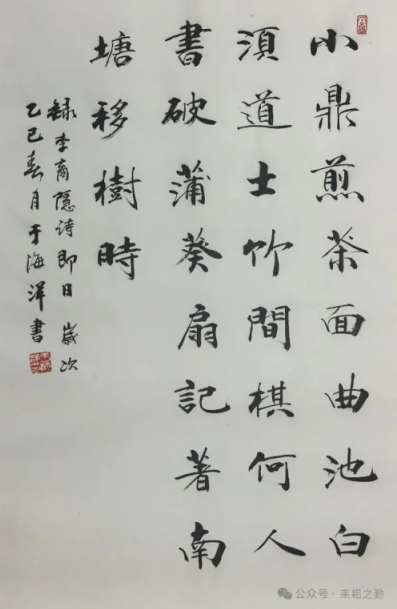 小鼎煎茶面曲池白
湏道士竹間棋何人
書破蒲葵扇記著南
塘移樹時
録李商隱詩即日 歲次
乙巳春月于海洋書
公众号·耒耜之勤